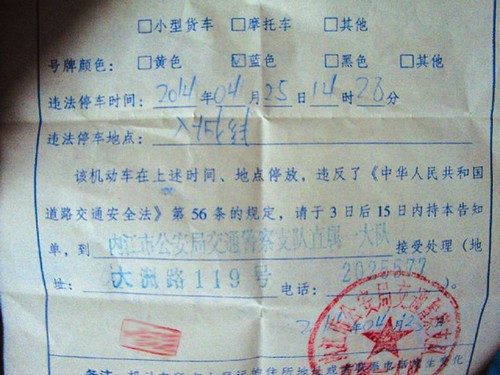 □小型货车 □摩托车 □其他
号牌颜色: □黄色 ☑蓝色 □黑色 □其他
违法停车时间: 2014年04月25日14时28分
违法停车地点:
该机动车在上述时间、地点停放,违反了《中华人民共和国
道路交通安全法》第56条的规定,请于3日后15日内持本告知
单,到内江市公安局交通警察支队直属一大队接受处理(地
址: 大洲路119号 电话: 2025677)。